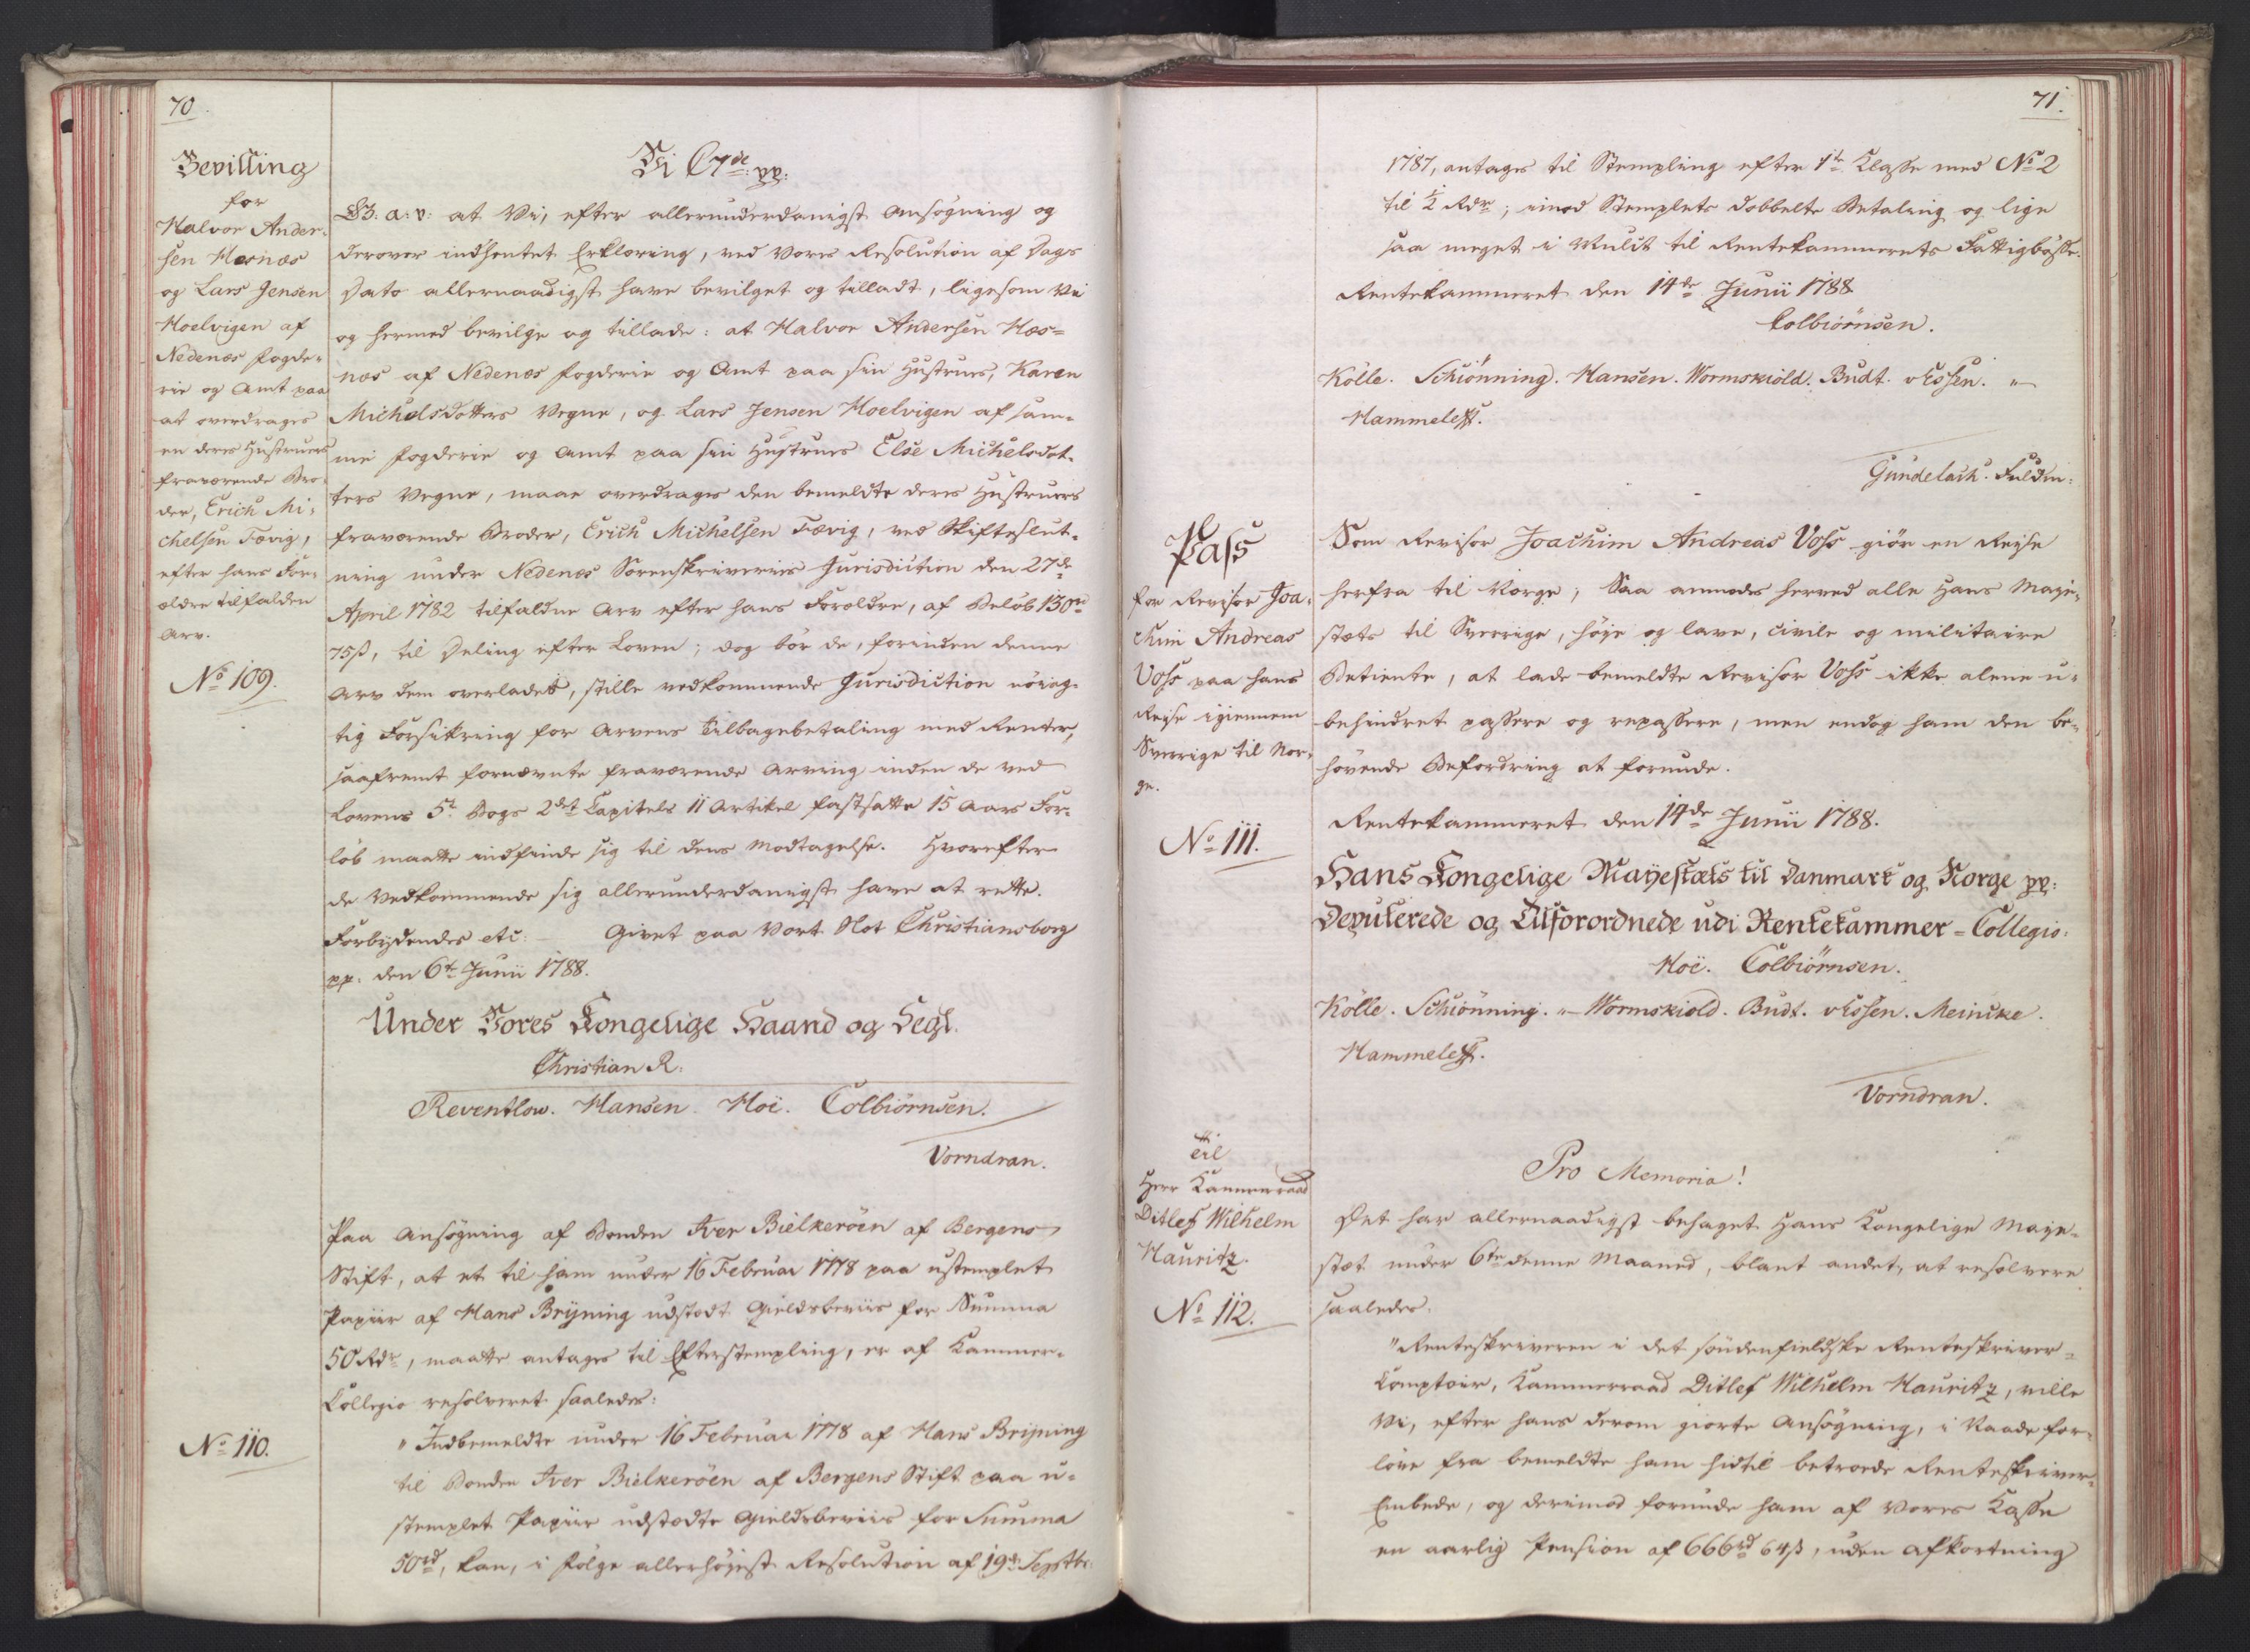 70.
Bevilling
for
Halvor Ander-
sen Hæsnæs
og Lars Jensen
Hoelvigen af
Nedenæs Fogde-
rie og Amt paa
at overdrages
en deres Hustruers
fraværende Bro-
der, Erich Mi-
chelsen Fævig,
efter hans For-
ældre tilfalden
Arv.
No 109.
Vi C 7de pp:
G: a: v: at Vi, efter allerunderdanigst Ansøgning og
derover indhentet Erklæring, ved Vores Resolution af Dags
Dato allernaadigst have bevilget og tilladt, ligesom Vi
og hermed bevilge og tillade: at Halvor Andersen Hæs-
næs af Nedenæs Fogderie og Amt paa sin Hustrues, Karen
Michelsdotters Vegne, og Lars Jensen Hoelvigen af sam-
me Fogderie og Amt paa sin Hustrues Else Michelsdot-
ters Vegne, maae overdrages den bemeldte deres Hustruers
fraværende Broder, Erich Michelsen Fævig, ved Skifteslut-
ning under Nedenes Sorenskriveries Jurisdiction den 27de
April 1782 tilfaldne Arv efter hans Forældre, af Beløb 130rd
75ß, til Deling efter Loven; dog bør de, forinden denne
Arv dem overlades, stille vedkommende Jurisdiction nøiag-
tig Forsikring for Arvens Tilbagebetaling med Renter,
saafremt fornævnte fraværende Arving inden de ved
Lovens 5te Bogs 2det Capitels 11 Artikel fastsatte 15 Aars For-
løb maatte indfinde sig til dens Modtagelse. Hvorefter
de Vedkommende sig allerunderdanigst have at rette.
Forbydendes etc: Givet paa Vort Slot Christiansborg
pp. den 6te Junii 1788.
Under Vores Kongelige Haand og Segl.
Christian R.
Reventlow. Hansen. Hoë. Colbiørnsen.
Vorndran.
No 110.
Paa Ansøgning af Bonden Iver Bielkerøen af Bergens
Stift, at et til ham under 16 Februar 1778 paa ustemplet
Papiir af Hans Bryning udstædt Gieldsbeviis for Summa
50 Rdr, maatte antages til Efterstempling, er af Kammer-
Collegio resolveret saaledes:
" Indbemeldte under 16 Februar 1778 af Hans Bryning
til Bonden Iver Bielkerøen af Bergens Stift paa u-
stemplet Papiir udstædte Gieldsbeviis for Summa
50rd, kan, i Følge allerhøiest Resolution af 19de Septbr
71.
1787, antages til Stempling efter 1te Classe med No 2
til ½ Rdr; imod Stemplets dobbelte Betaling og lige
saa meget i Mulct til Rentekammerets Fattigbøsse.
Rentekammeret den 14de Junii 1788
Colbiørnsen.
Kölle. Schiönning. Hansen. Wormskiold. Budt. v Essen. "
Hammeleff.
Gundelach. Fuldm:
Pass
for Revisor Joa-
chim Andreas
Voss paa hans
Reise igiennem
Sverrige til Nor-
ge.
No 111.
Som Revisor Joachim Andreas Voss giør en Reise
herfra til Norge; Saa anmodes herved alle Hans Maje-
stæts til Sverrige, høie og lave, civile og militaire
Betiente, at lade bemeldte Revisor Voss ikke alene u-
behindret passere og repassere, men endog ham den be-
hövende Befordring at forunde.
Rentekammeret den 14de Junii 1788.
Hans Kongelige Mayestæts til Danmark og Norge pp:
Deputerede og Tilforordnede udi Rentekammer-Collegio:
Hoë. Colbiörnsen.
Kölle. Schiönning. " Wormskiold. Budt. v Essen. Meincke.
Hammeleff.
Vorndran.
Til
Herr Kammerraad
Ditlef Wilhelm
Hauritz.
No 112.
Pro Memoria!
Det har allernaadigst behaget Hans Kongelige Maje-
stæt under 6te denne Maaned, blant andet, at resolvere
saaledes:
"Renteskriveren i det søndenfieldske Renteskriver-
Comptoir, Kammerraad Ditlef Wilhelm Hauritz, ville
Vi, efter hans derom giorte Ansøgning, i Naade for-
løve fra bemeldte ham hidtil betroede Renteskriver-
Embede, og derimod forunde ham af Vores Casse
en aarlig Pension af 666rd 64ß, uden Afkortning